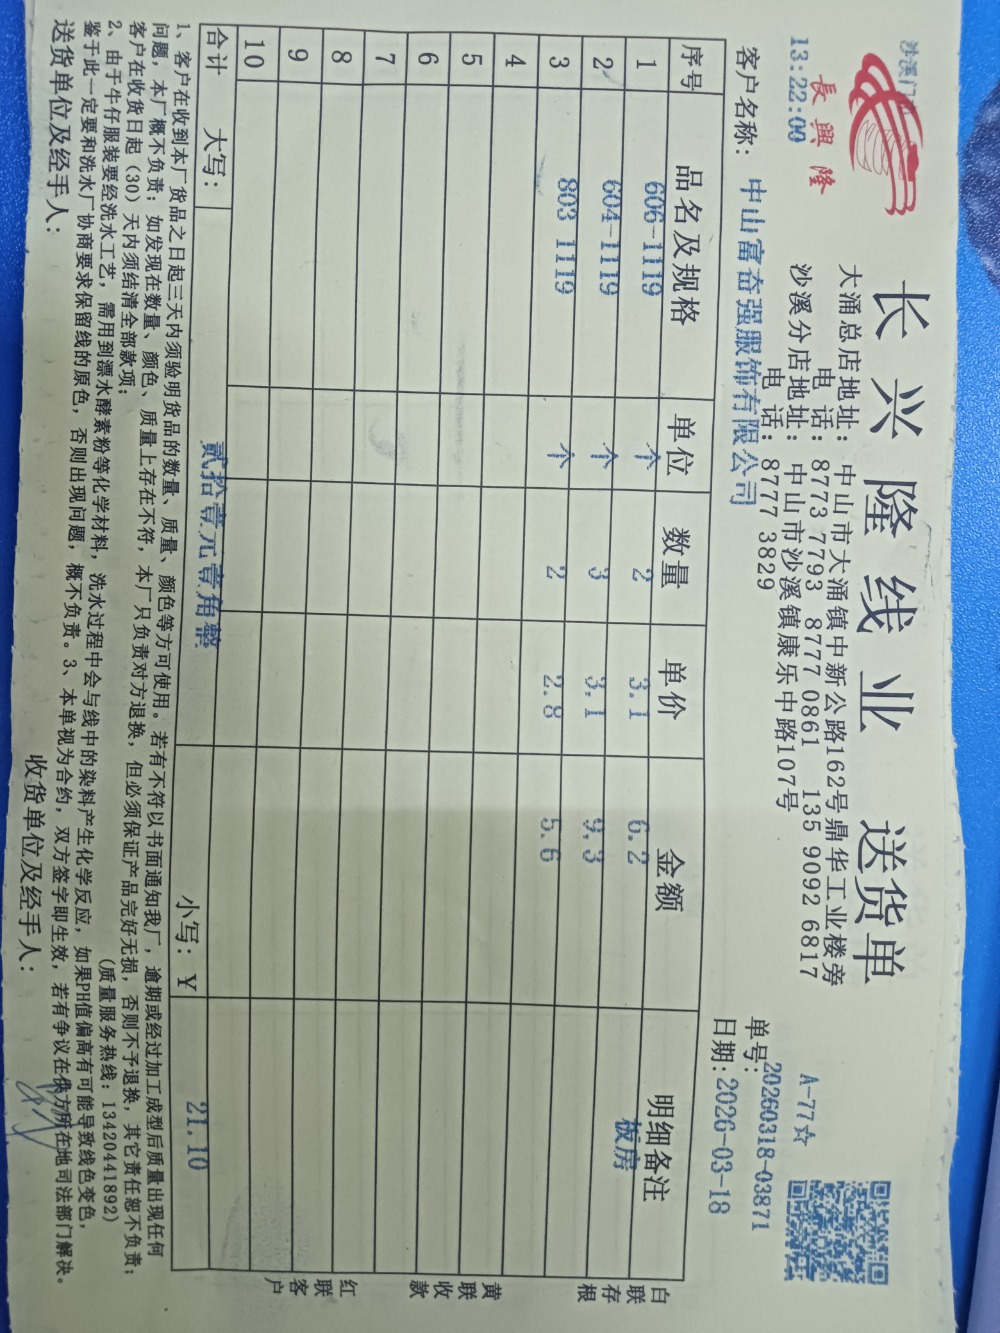 沙溪门
13:22:00
長興隆
长兴隆线业 送货单
大涌总店地址: 中山市大涌镇中新公路162号鼎华工业楼旁
电 话: 8773 7793 8777 0861 135 9092 6817
沙溪分店地址: 中山市沙溪镇康乐中路107号
电 话: 8777 3829
A-77☆
单号: 20260318-03871
客户名称: 中山富奋强服饰有限公司
日期: 2026-03-18
序号 品名及规格 单位 数量 单价 金额 明细备注
1 606-1119 个 2 3.1 6.2 板房
2 604-1119 个 3 3.1 9.3
3 803 1119 个 2 2.8 5.6
4
5
6
7
8
9
10
合计 大写: 贰拾壹元壹角整 小写: ¥ 21.10
白联存根
黄联收款
红联客户
1、客户在收到本厂货品之日起三天内须验明货品的数量、质量、颜色等方可使用。若有不符以书面通知我厂，逾期或经过加工成型后质量出现任何
问题，本厂概不负责；如发现在数量、颜色、质量上存在不符，本厂只负责对方退换，但必须保证产品完好无损，否则不予退换，其它责任恕不负责；
客户在收货日起（30）天内须结清全部款项； (质量服务热线: 13420441892)
2、由于牛仔服装要经洗水工艺，需用到漂水酵素粉等化学材料，洗水过程中会与线中的染料产生化学反应，如果PH值偏高有可能导致线色变色，
鉴于此一定要和洗水厂协商要求保留线的原色，否则出现问题，概不负责。3、本单视为合约，双方签字即生效，若有争议在供方所在地司法部门解决。
送货单位及经手人: 收货单位及经手人: